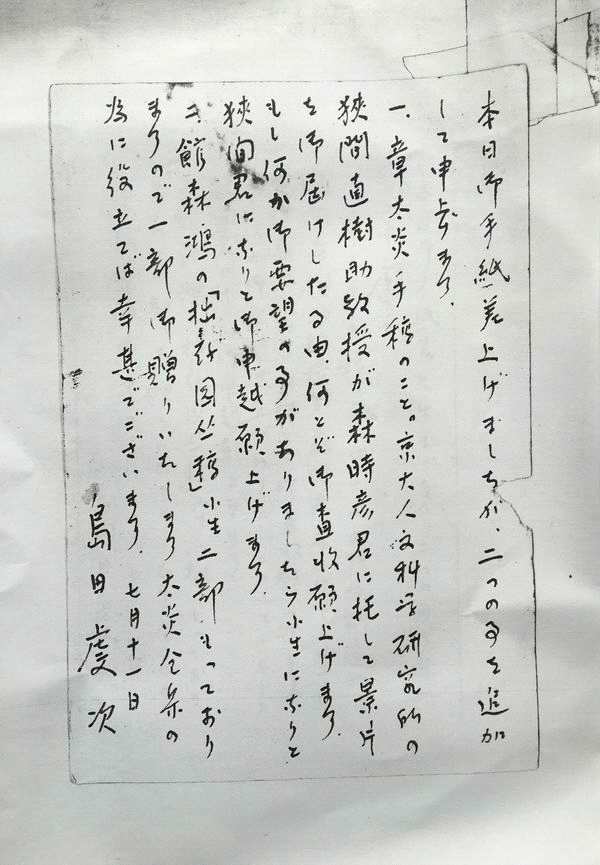 本日御手紙差上げましたが、二つの事を追加
して申上ます、
一、章太炎手稿のこと。京大人文科学研究所の
狭間直樹助教授が森時彦君に托して景片
を御届けしたる由、何とぞ御査収願上げます、
もし何か御要望の事がありましたら小生になりと
狭间君になりと御申越願上げます、
二、館森鴻の「拙存园丛稿」小生二部もっており
ますので一部御贈りいたします 太炎全集の
為に役立てば幸甚でございます、 七月十一日
島田虔次